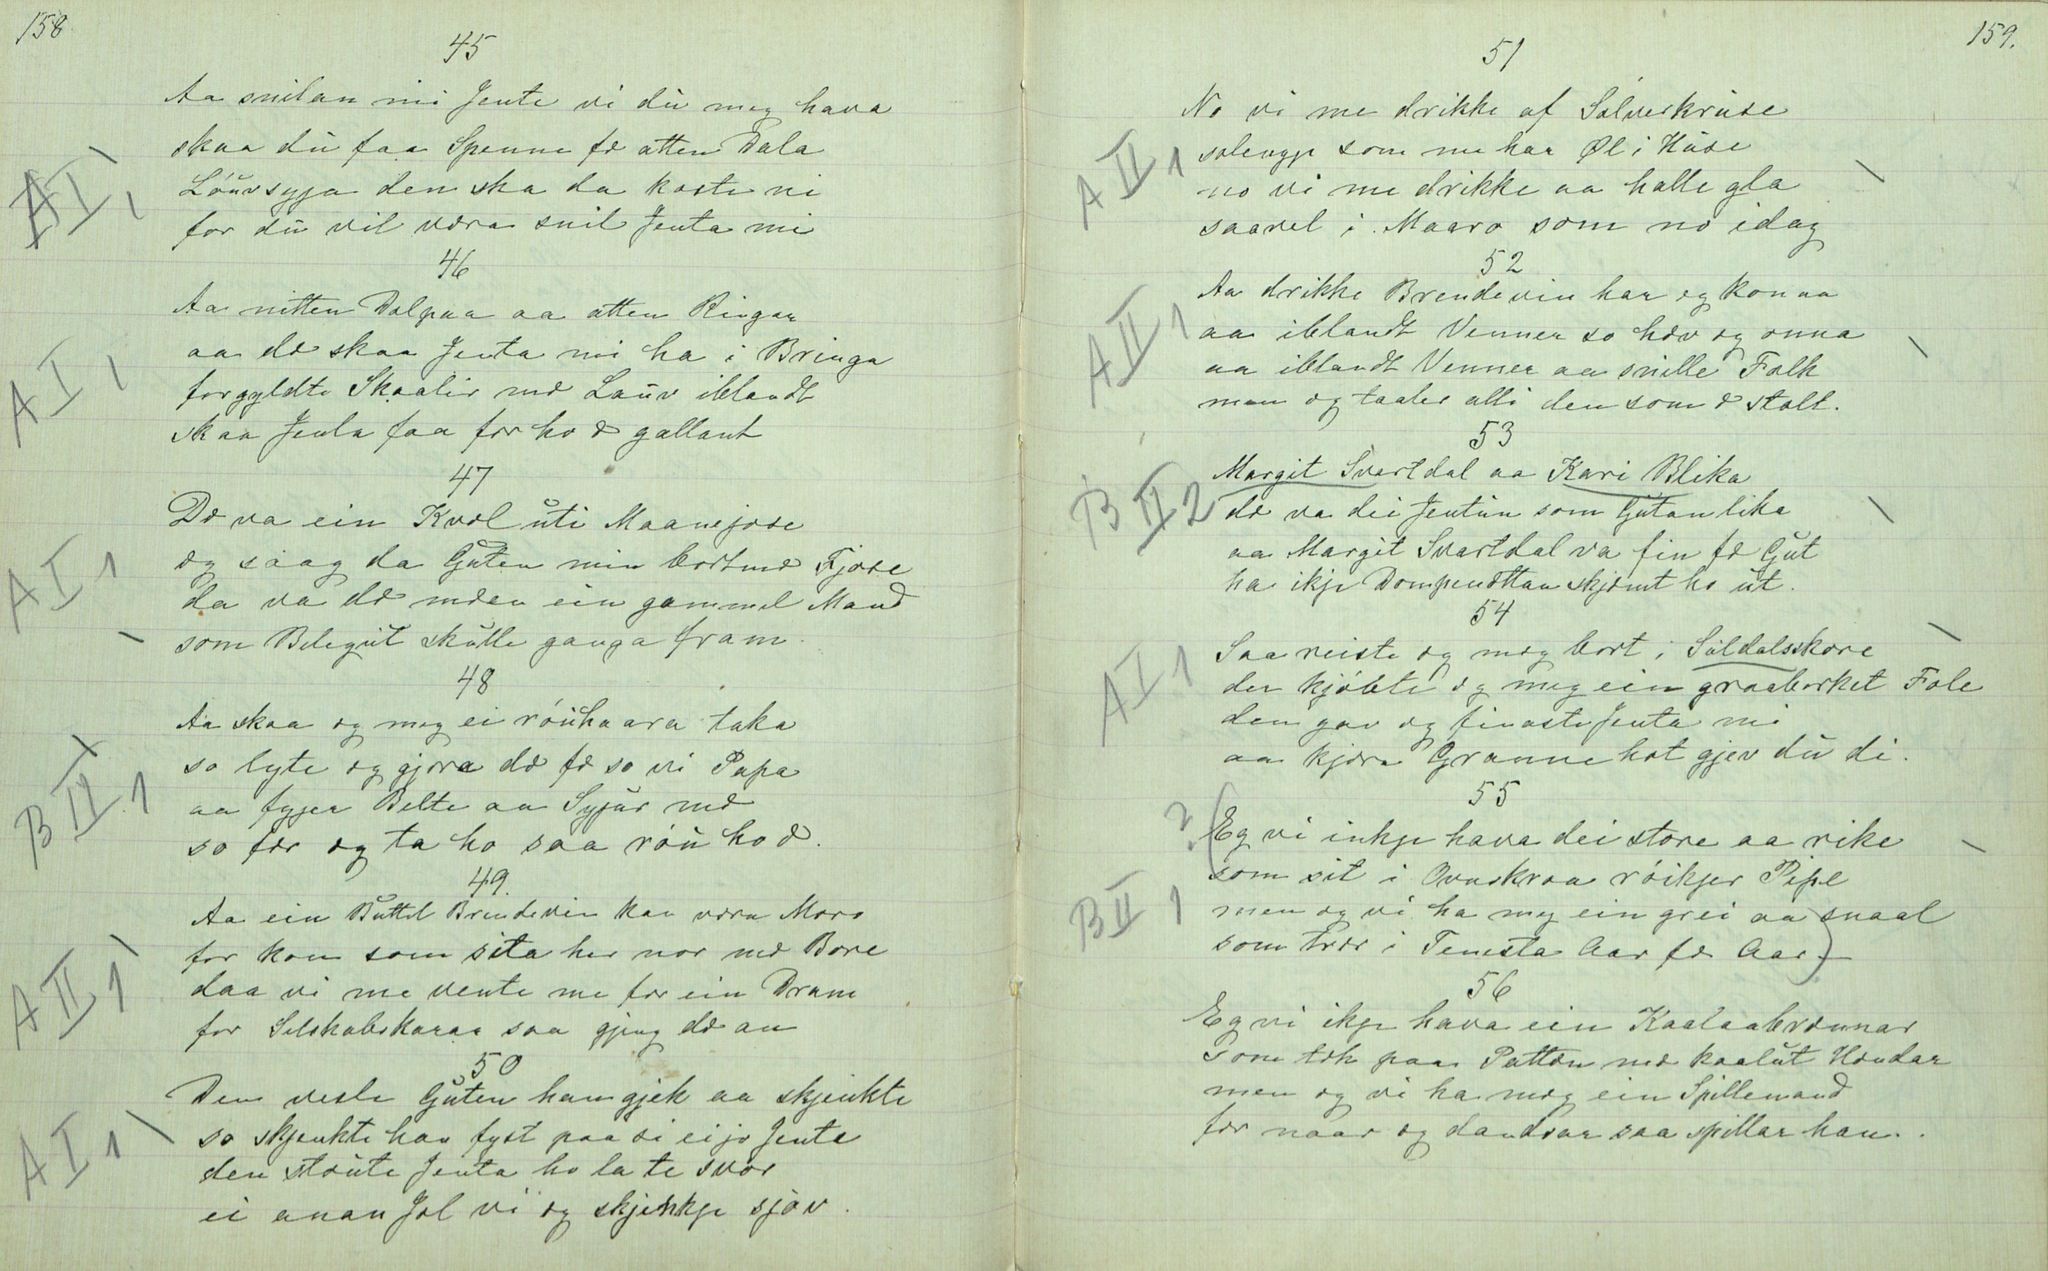 158
45
Aa snilan mi Jente vi dŭ meg hava
skaa dŭ faa Spenne fæ atten Dala
Lóŭvsygja den ska da koste ni
for dŭ vil væra snil Jenta mi
A I 1
46
Aa nitten Dalpaa aa atten Ringar
aa dæ skaa Jenta mi ha i Bringa
forgyldte Skaalir mæ Lauv iblandt
skaa Jenta faa for ho æ gallant
A I 1
47
Dæ va ein Kvæl ŭti Maanejose
eg saag da Gŭten min bortmæ Fjose
da va dæ mæen ein gammel Mand
som Belegŭt skŭlle ganga fram.
A I 1
48
Aa skaa eg meg ei róŭhaara taka
so lyte eg gjera dæ fæ so vi Papa
aa fygjer Belte aa Syjŭr mæ
so fær eg ta ho saa róŭ ho æ.
B II 1
49.
Aa ein Bŭttel Brendevin kan væra Moro
for kon som sita her nor mæ Bore
daa vi me vente me for ein Dram
for Selskabskarar saa gjeng dæ an
A II 1
50
Den vesle Gŭten han gjek aa skjenkte
so skjenkte han fyst paa si eijo Jente
den støŭte Jenta ho la te svor
ei anan Jol vi eg skjenkje sjøv.
A I 1
159.
51
No vi me drikke af Sølverkrŭse
solengje som me har Øl i Hŭse
no vi me drikke aa halle gla
saavel i Maaro som no idag
A II 1
52
Aa drikke Brendevin har eg konaa
aa iblandt Venner so hev eg onna
aa iblandt Venner aa snille Folk
men eg taaler alli den som æ stolt.
A II 1
53
Margit Svartdal aa Kari Blika
dæ va dei Jentŭn som Gŭtan lika
aa Margit Svartdal va fin fæ Gŭt
ha ikje Dompendttan skjæmt ho ŭt.
B II 2
54
Saa reiste eg meg bort i Sŭldalsskore
der kjóbte eg meg ein graaborket Fole
den gav eg finaste Jenta mi
aa kjære Granne hot gjev dŭ di.
A I 1
55
2 Eg vi inkje hava dei store aa rike
som sit i Ovnskraa róikjer Pipe
men eg vi ha meg ein grei aa snaal
som træ i Tenesta Aar fæ Aar
B II 1
56
Eg vi ikje hava ein Kaalaabrennar
Som tek paa Patten mæ kaalŭt Hændar
men eg vi ha meg ein Spillemand
for naar eg dandsar saa spillar han.